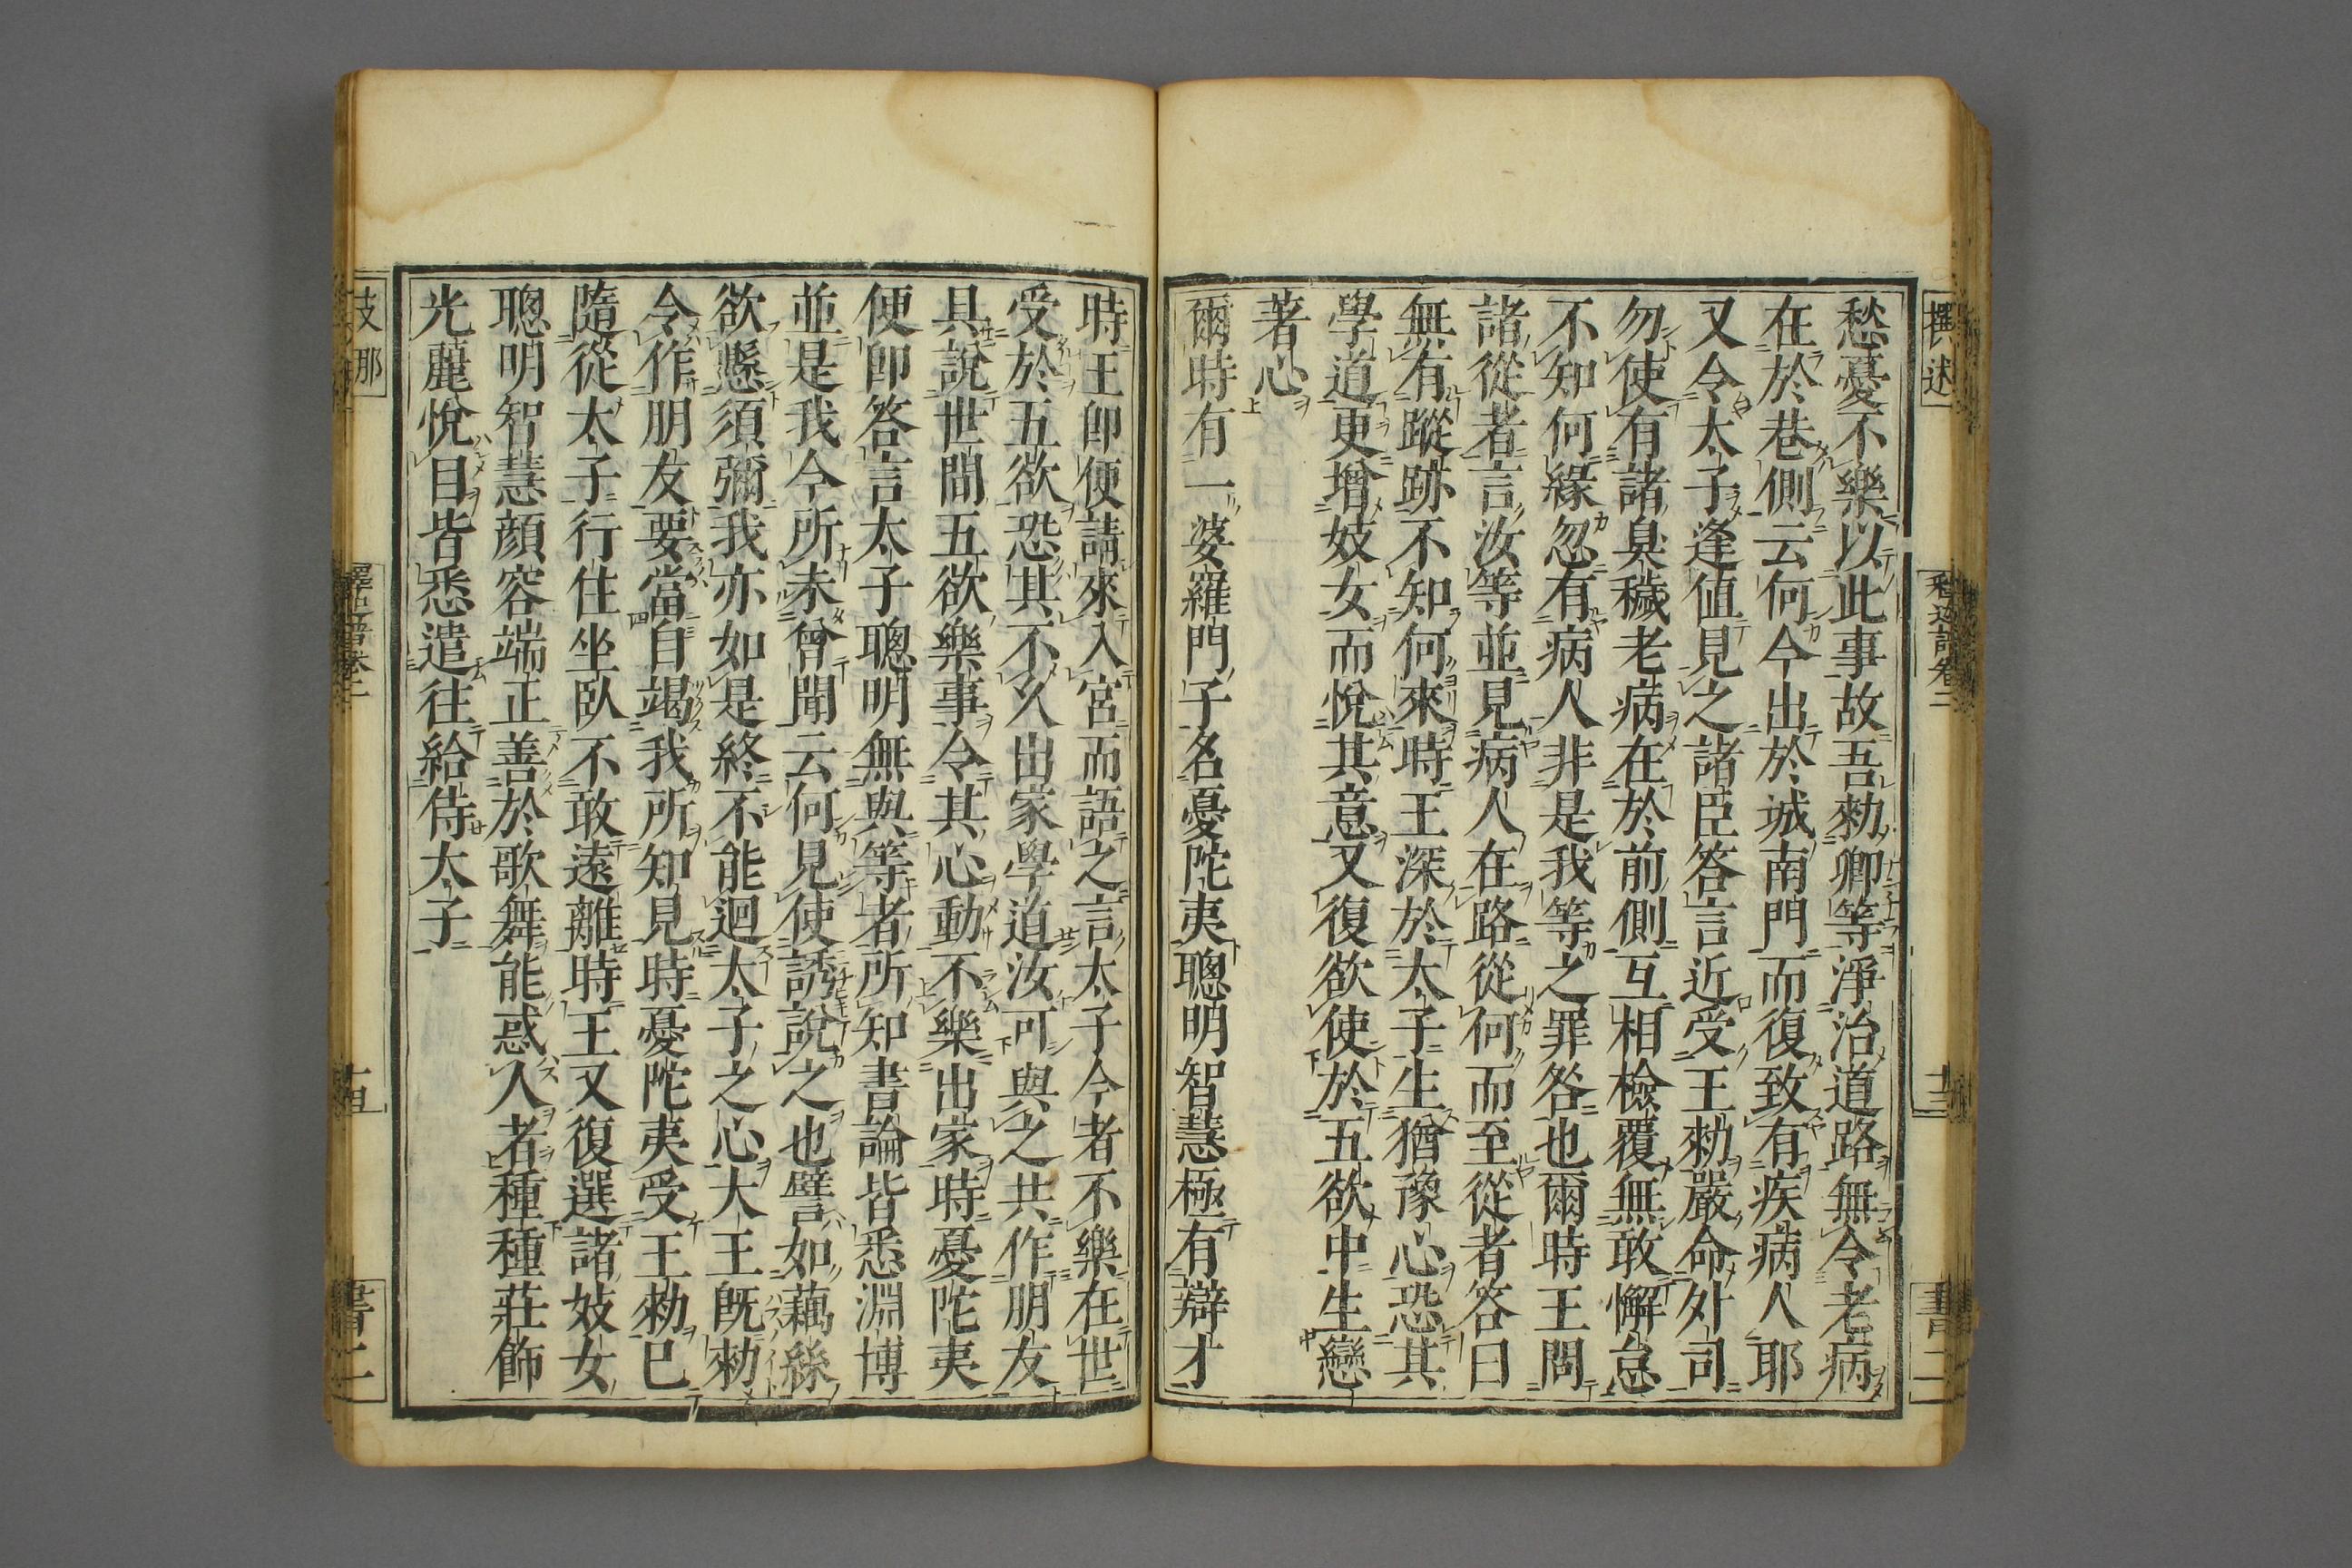 愁憂不樂以此事故吾勑卿等淨治道路無令老病
在於巷側云何今出於城南門而復致有疾病人耶
又令太子逢值見之諸臣答言近受王勑嚴命外司
勿使有諸臭穢老病在於前側互相檢覆無敢懈怠
不知何緣忽有病人非是我等之罪咎也爾時王問
諸從者言汝等並見病人在路從何而至從者答曰
無有蹤跡不知何來時王深於太子生猶豫心恐其
學道更增妓女而悅其意又復欲使於五欲中生戀
著心
爾時有一婆羅門子名憂陀夷聰明智慧極有辯才
時王卽便請來入宮而語之言太子今者不樂在世
受於五欲恐其不久出家學道汝可與之共作朋友
具說世間五欲樂事令其心動不樂出家時憂陀夷
便卽答言太子聰明無與等者所知書論皆悉淵博
並是我今所未曾聞云何見使誘說之也譬如藕絲
欲懸須彌我亦如是終不能迴太子之心大王旣勑
令作朋友要當自竭我所知見時憂陀夷受王勑已
隨從太子行住坐臥不敢遠離時王又復選諸妓女
聰明智慧顏容端正善於歌舞能惑人者種種莊飾
光麗悅目皆悉遣往給侍太子